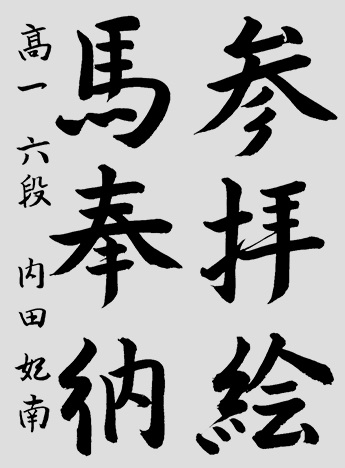 参拝絵
馬奉納
高一 六段 内田妃南